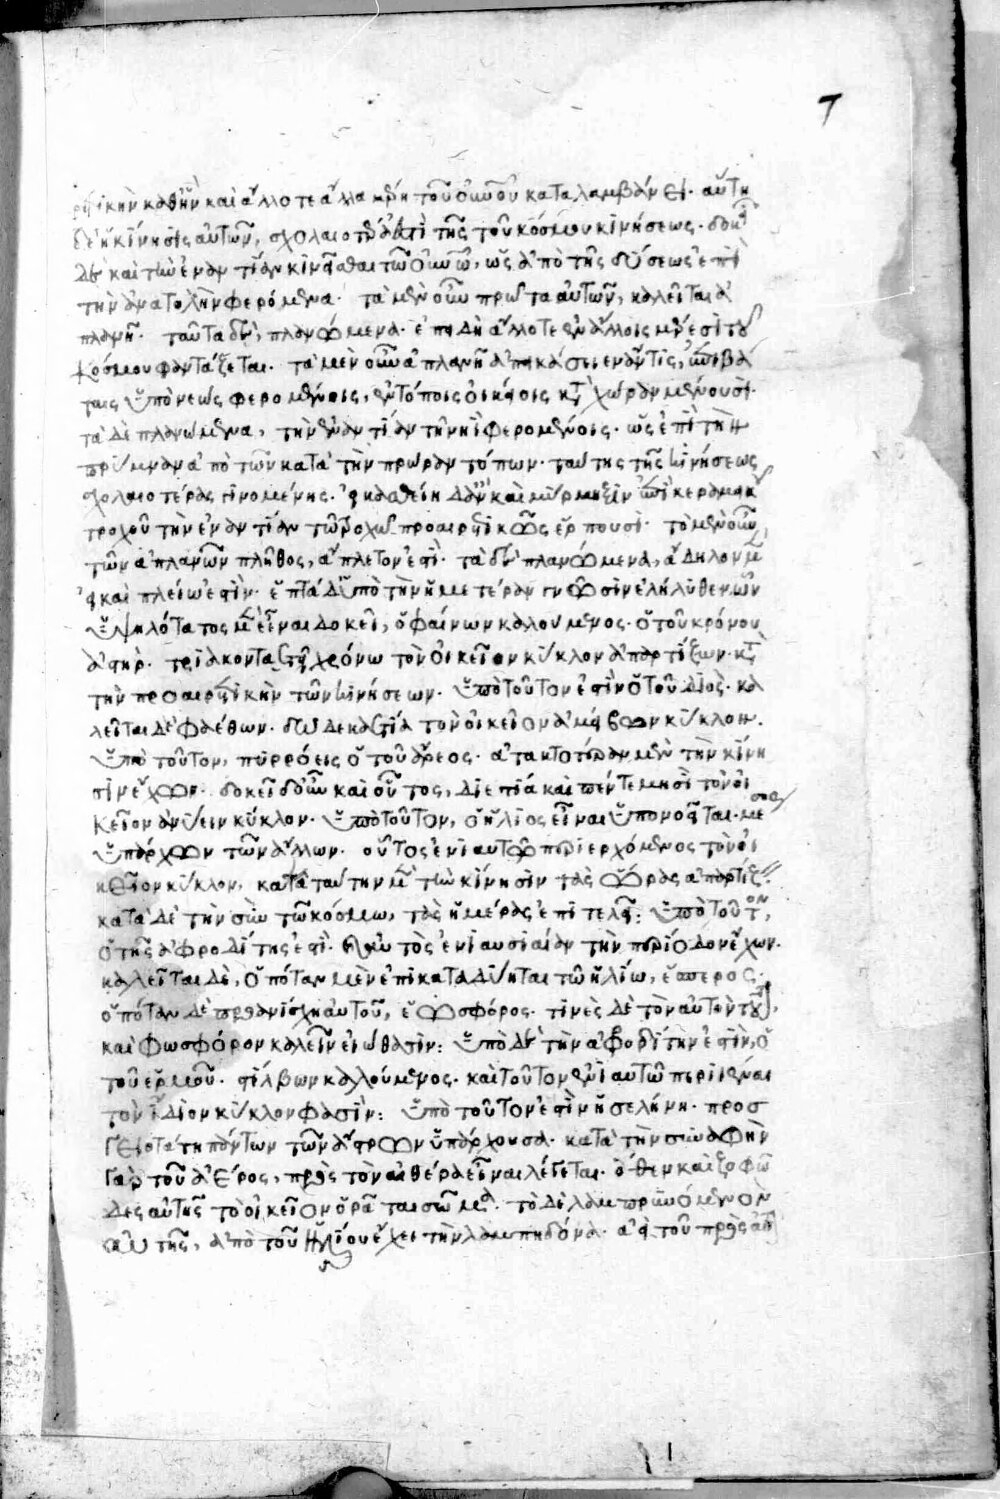 7
ρετικὴν καθ' ἣν καὶ ἄλλοτε ἄλλα μέρη τοῦ οὐρανοῦ καταλαμβάνει· αὕτη
δὲ ἡ κίνησις αὐτῶν, σχολαιοτέρα ἐστὶ τῆς τοῦ κόσμου κινήσεως· δοκεῖ
δὲ καὶ τὴν ἐναντίαν κινεῖσθαι τῷ οὐρανῷ, ὡς ἀπὸ τῆς δύσεως ἐπὶ
τὴν ἀνατολὴν φερόμενα· τὰ μὲν οὖν πρῶτα αὐτῶν, καλεῖται ἀ
πλανῆ· ταῦτα δὲ, πλανώμενα· ἐπειδὴ ἄλλοτε ἐν ἄλλοις μέρεσι τοῦ
κόσμου φαντάζεται· τὰ μὲν οὖν ἀπλανῆ ἀπεικάσειεν ἄν τις, ἐπιβά
ταις ὑπὸ νεὼς φερομένοις, ἐν τόποις οἰκείοις κατὰ χώραν μένουσι·
τὰ δὲ πλανώμενα, τὴν ἐναντίαν τῇ νηῒ φερομένοις· ὡς ἐπὶ τὴν
πρύμναν ἀπὸ τῶν κατὰ τὴν πρῶραν τόπων· ταύτης τῆς κινήσεως
σχολαιοτέρας γινομένης· εἰκασθείη δ' ἂν καὶ μύρμηξιν ἐπὶ κεραμεικοῦ
τροχοῦ τὴν ἐναντίαν τῷ τροχῷ προαιρετικῶς ἕρπουσι· τὸ μὲν οὖν
τῶν ἀπλανῶν πλῆθος, ἄπλετον ἐστί· τὰ δὲ πλανώμενα, ἄδηλον μὲν
εἰ καὶ πλείω ἐστὶν· ἑπτὰ δ' ὑπὸ τὴν ἡμετέραν γνῶσιν ἐλήλυθεν ὧν
ὑψηλότατος μὲν εἶναι δοκεῖ, ὁ φαίνων καλούμενος· ὁ τοῦ κρόνου
ἀστήρ· τριακονταετεῖ χρόνω τὸν οἰκεῖον κύκλον ἀπαρτίζων· κατὰ
τὴν προαιρετικὴν τῶν κινήσεων· ὑπὸ τοῦτον ἐστὶν ὁ τοῦ διός· κα
λεῖται δὲ φαέθων· δωδεκαετία τὸν οἰκεῖον ἀμείβων κύκλον·
ὑπὸ τοῦτον, πυρρόεις ὁ τοῦ ἄρεος· ἀτακτοτέραν μὲν τὴν κίνη
σιν ἔχων· δοκεῖ δ' οὖν καὶ οὗτος, διετία καὶ πέντε μησὶ τὸν οἰ
κεῖον ἀνύειν κύκλον· ὑπὸ τοῦτον, ὁ ἥλιος εἶναι ὑπονοεῖται· μέσος
ὑπάρχων τῶν ἄλλων· οὗτος ἐνιαυτῷ περιερχόμενος τὸν οἰ
κεῖον κύκλον, κατὰ ταύτην μὲν τὴν κίνησιν τὰς ὥρας ἀπαρτίζει
κατὰ δὲ τὴν σὺν τῷ κόσμω, τὰς ἡμέρας ἐπιτελεῖ: ὑπὸ τοῦτον,
ὁ τῆς ἀφροδίτης ἐστί· καὶ αὐτὸς ἐνιαυσιαίαν τὴν περίοδον ἔχων·
καλεῖται δὲ, ὁπόταν μὲν ἐπικαταδύηται τῷ ἡλίω, ἕσπερος·
ὁπόταν δὲ προανίσχη αὐτοῦ, ἑωσφόρος· τινὲς δὲ τὸν αὐτὸν τοῦτον,
καὶ φωσφόρον καλεῖν εἰώθασιν: ὑπὸ δὲ τὴν ἀφροδίτην ἐστὶν, ὁ
τοῦ ἑρμοῦ· στίλβων καλούμενος· καὶ τοῦτον ἐνιαυτῷ περιϊέναι
τὸν ἴδιον κύκλον φασίν: ὑπὸ τοῦτον ἐστὶν ἡ σελήνη· προσ
γειοτάτη πάντων τῶν ἄστρων ὑπάρχουσα· κατὰ τὴν συναφὴν
γὰρ τοῦ ἀέρος, πρὸς τὸν αἰθέρα εἶναι λέγεται· ὅθεν καὶ ζοφῶ
δες αὐτῆς τὸ οἰκεῖον ὁρᾶται σῶμα· τὸ δὲ λαμπρυνόμενον
αὐτῆς, ἀπὸ τοῦ ἡλίου ἔχει τὴν λαμπηδόνα· ἀεὶ τοῦ πρὸς αὐτὸν